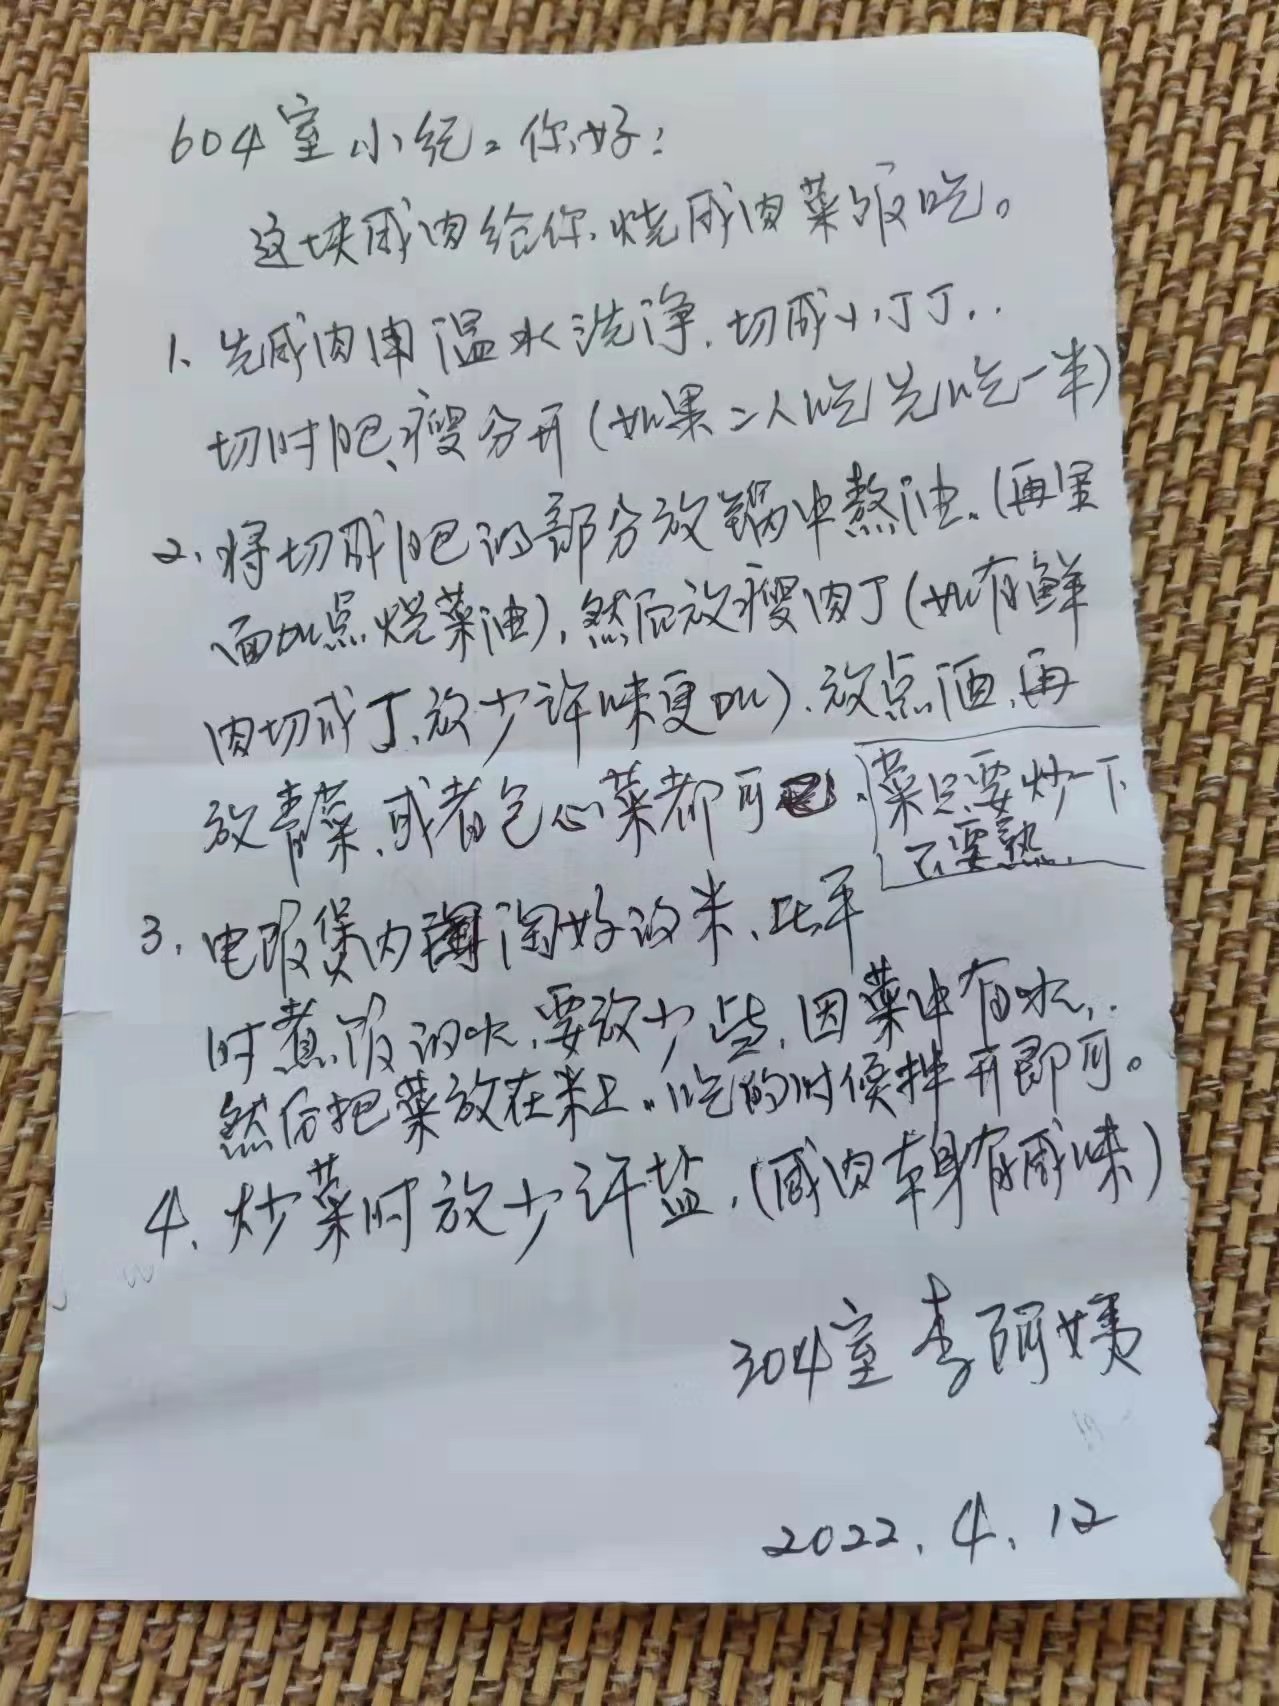 604室小纪。你好：
这块咸肉给你，烧咸肉菜饭吃。
1、先咸肉用温水洗净，切成小丁丁..
切时肥、瘦分开（如果二人吃先吃一半）
2、将切成肥的部分放锅中熬油。（再里
面加点烧菜油），然后放瘦肉丁（如有鲜
肉切成丁，放少许味更加）、放点酒，再
放青菜、或者包心菜都可、
菜只要炒一下
不要熟、
3、电饭煲内淘好的米、比平
时煮饭的水，要放少些，因菜中有水..
然后把菜放在米上。吃的时候拌开即可。
4、炒菜时放少许盐，（咸肉本身有咸味）
304室 李阿姨
2022.4.12